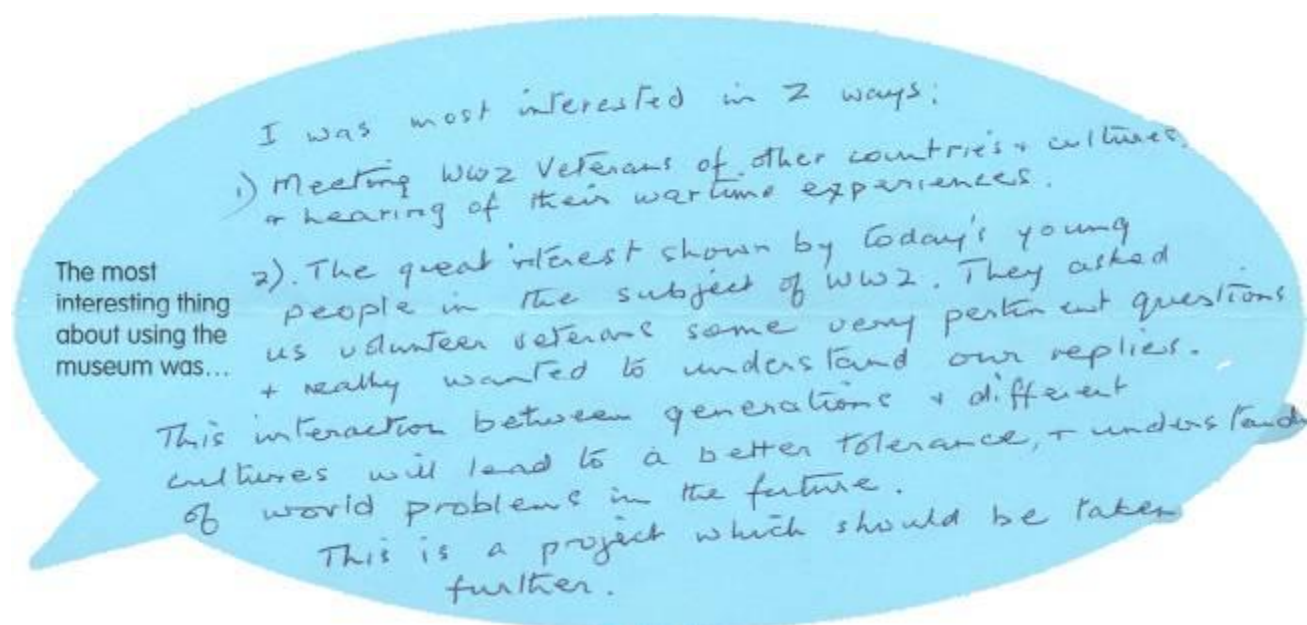 The most
interesting thing
about using the
museum was...
I was most interested in 2 ways:
1) Meeting WW2 Veterans of other countries + cultures,
+ hearing of their wartime experiences.
2). The great interest shown by today's young
people in the subject of WW2. They asked
us volunteer veterans some very pertinent questions
+ really wanted to understand our replies.
This interaction between generations + different
cultures will lead to a better tolerance, + understandg
of world problems in the future.
This is a project which should be taken
further.